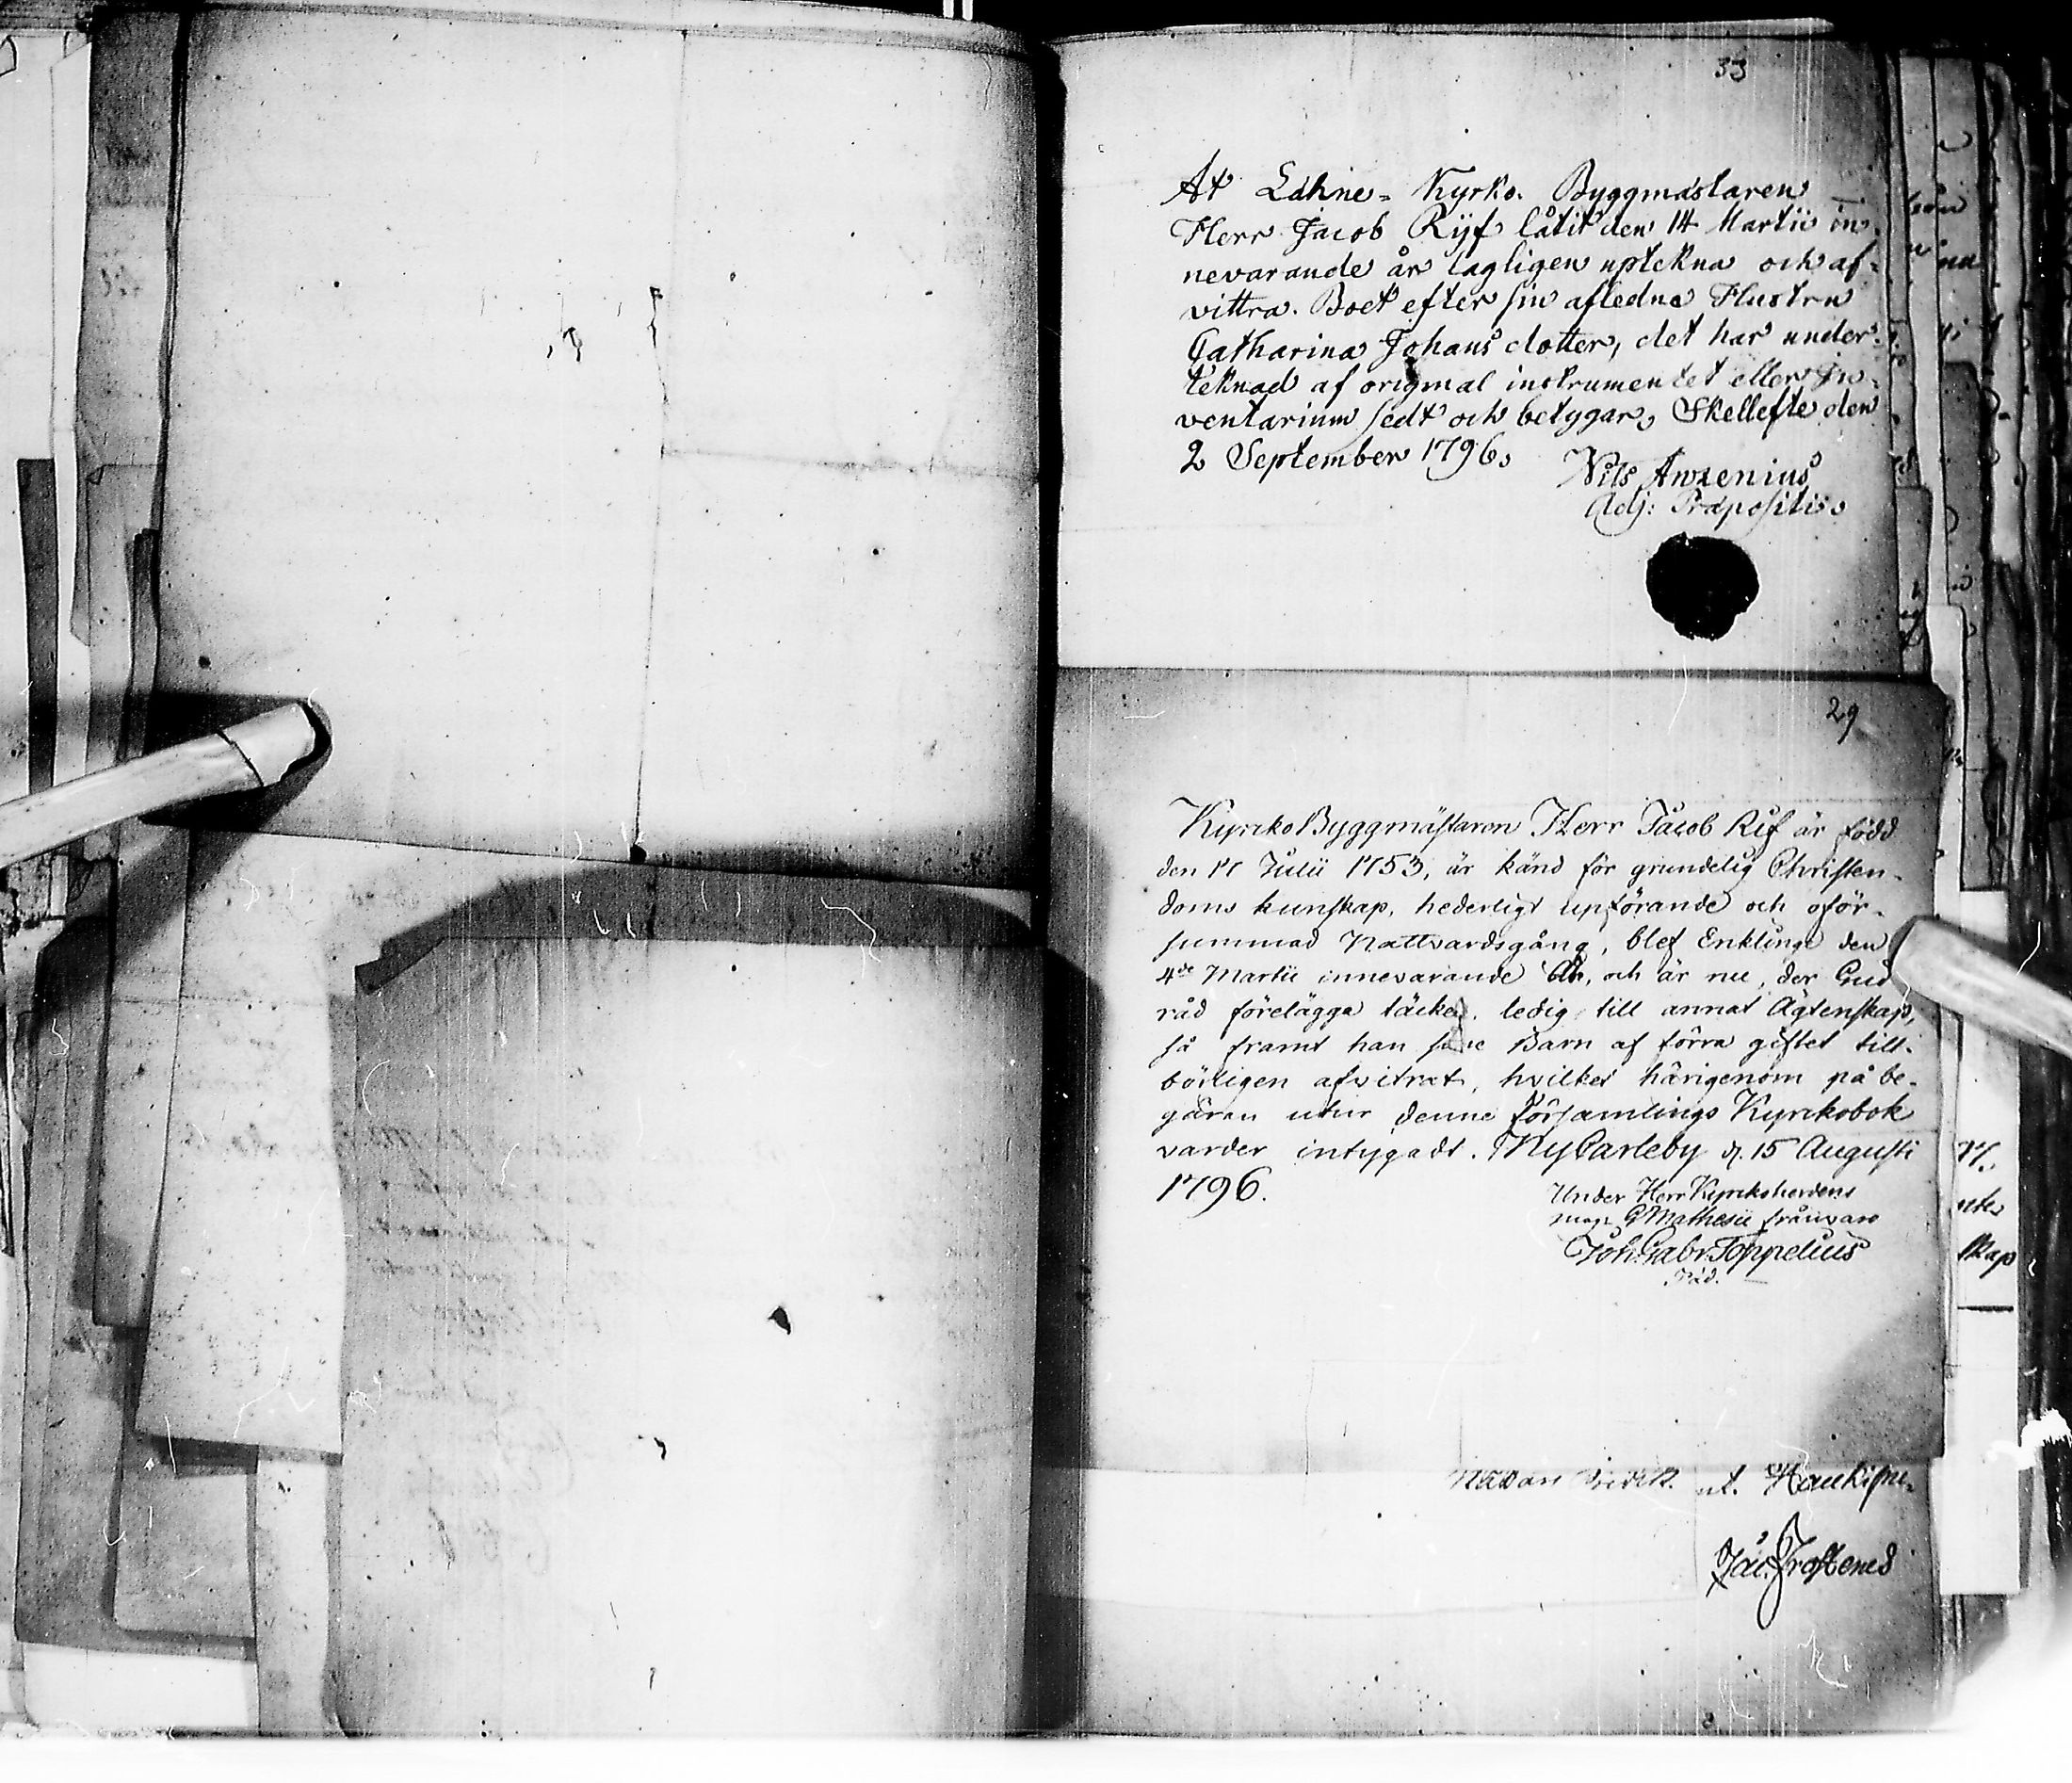 33
At Lähne- Kyrko. Byggmästaren
Herr Jacob Rijf låtit den 14 Martii in-
nevarande år lagligen uptekna och af-
vittra. Boet efter sin afledna Hustru
Catharina Johans dotter, det har under-
teknad af original instrumentet eller In-
ventarium sedt och betygar, Skellefte den
2 September 1796.
Nils
Adj: Præpositi
29
KyrckoByggmästaren Herr Jacob Rif är född
den 17 Julii 1753, är känd för grundelig Christen-
doms kunskap, hederligt upförande och oför-
summad Nattvardsgång, blef Enkling den
4de Martii innevarande År, och är nu, der Gud
råd förelägga täckes, ledig till annat Ägtenskap,
så framt han sine Barn af förra giftet till-
börligen afvitrat, hvilket härigenom på be-
gäran utur denne församlings Kyrckobok
varder intygadt. NyCarleby d. 15 Augusti
1796.
Under Herr Kyrckoherdens
mag. G Mathesii frånvaro
Joh. Gabr. Toppelius
Päd.
ut. Haukipu-
Jac. Frostenus
nter
skap